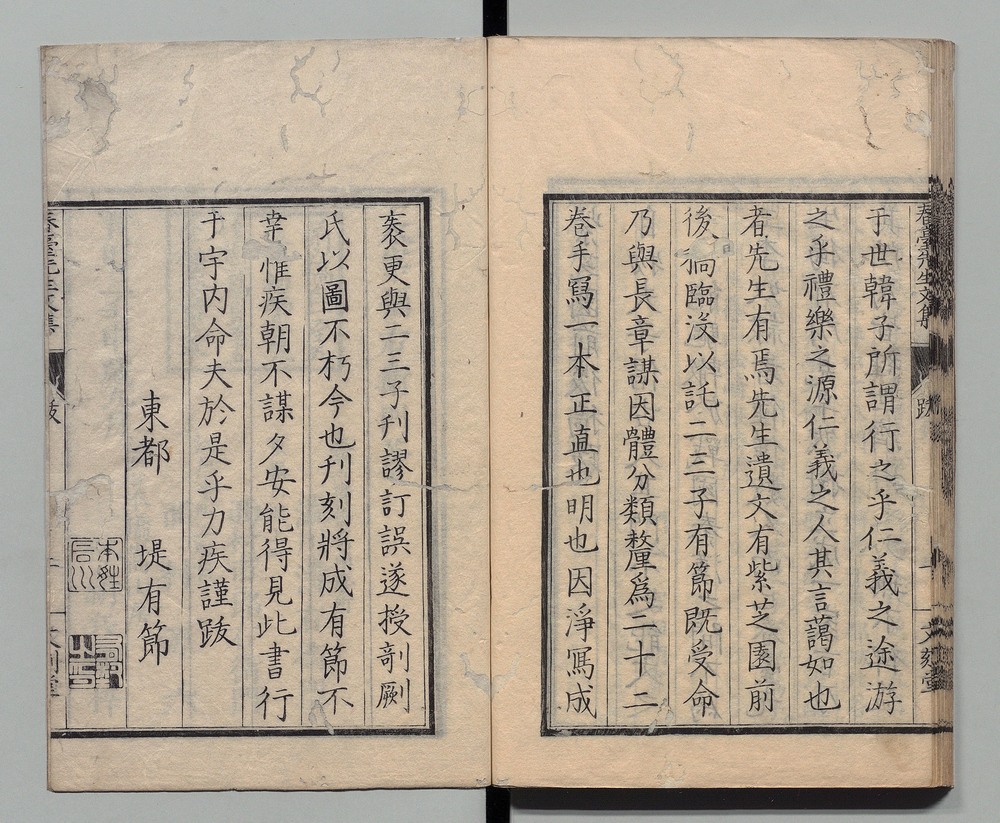 于世韓子所謂行之乎仁義之途游
之乎禮樂之源仁義之人其言藹如也
者先生有焉先生遺文有紫芝園前
後稿臨沒以託二三子有節既受命
乃與長章謀因體分類釐為二十二
卷手寫一本正直也明也因淨寫成
袠更與二三子刊謬訂誤遂授剞劂
氏以圖不朽今也刊刻將成有節不
幸惟疾朝不謀夕安能得見此書行
于宇内命夫於是乎力疾謹跋
東都 堤有節
春臺先生文集 跋